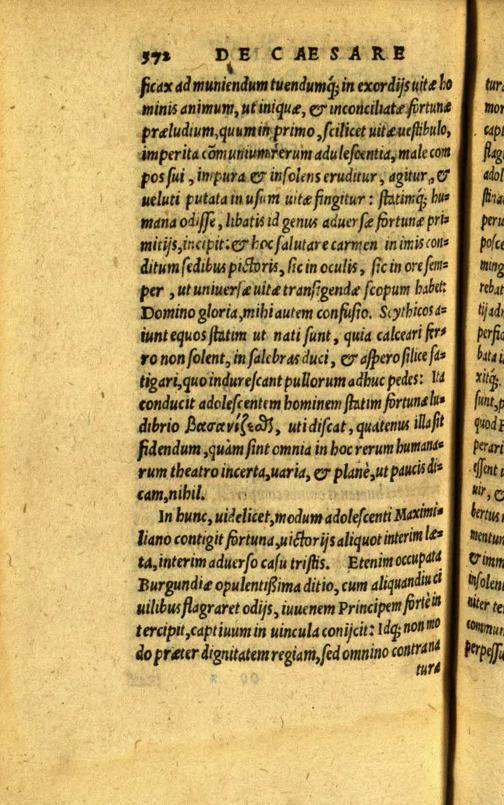 572 DE CAESARE
ficax ad muniendum tuendumq́; in exordijs uitæ ho
minis animum, ut iniquæ, & inconciliatæ fortunæ
præludium, quum in primo, scilicet uitæ uestibulo,
imperita cõmunium rerum adulescentia, male com
pos sui, impura & insolens eruditur, agitur, &
ueluti putata in usum uitæ fingitur: statimq́; hu=
mana odisse, libatis id genus aduersæ fortunæ pri=
mitijs, incipit: & hoc salutare carmen in imis con=
ditum sedibus pictoris, sic in oculis, sic in ore sem=
per, ut uniuersæ uitæ transigendæ scopum habet:
Domino gloria, mihi autem confusio. Scythicos a=
iunt equos statim ut nati sunt, quia calceari fer=
ro non solent, in salebras duci, & aspero silice fa=
tigari, quo indurescant pullorum adhuc pedes: Ita
conducit adolescentem hominem statim fortunæ lu=
dibrio βασανίζεσθαι, uti discat, quatenus illa sit
fidendum, quàm sint omnia in hoc rerum humana=
rum theatro incerta, uaria, & planè, ut paucis di=
cam, nihil.
In hunc, uidelicet, modum adolescenti Maximi=
liano contigit fortuna, uictorijs aliquot interim læ=
ta, interim aduerso casu tristis. Etenim occupata
Burgundiæ opulentissima ditio, cum aliquandiu ci
uilibus flagraret odijs, iuuenem Principem fortè in
tercipit, captiuum in uincula conijcit: Idq́; non mo
do præter dignitatem regiam, sed omnino contra na
turæ